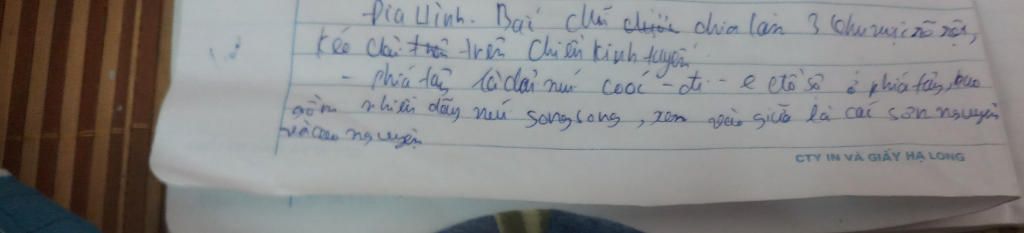 Địa Hình. Bắc chia làm 3 khu vực rõ rệt,
kéo dài trên chiều kinh tuyến
- phía tây là dải núi cooc - đi - e đồ sộ ở phía tây, bao
gồm nhiều dãy núi song song, xen vào giữa là các sơn nguyên
và cao nguyên
CTY IN VÀ GIẤY HẠ LONG